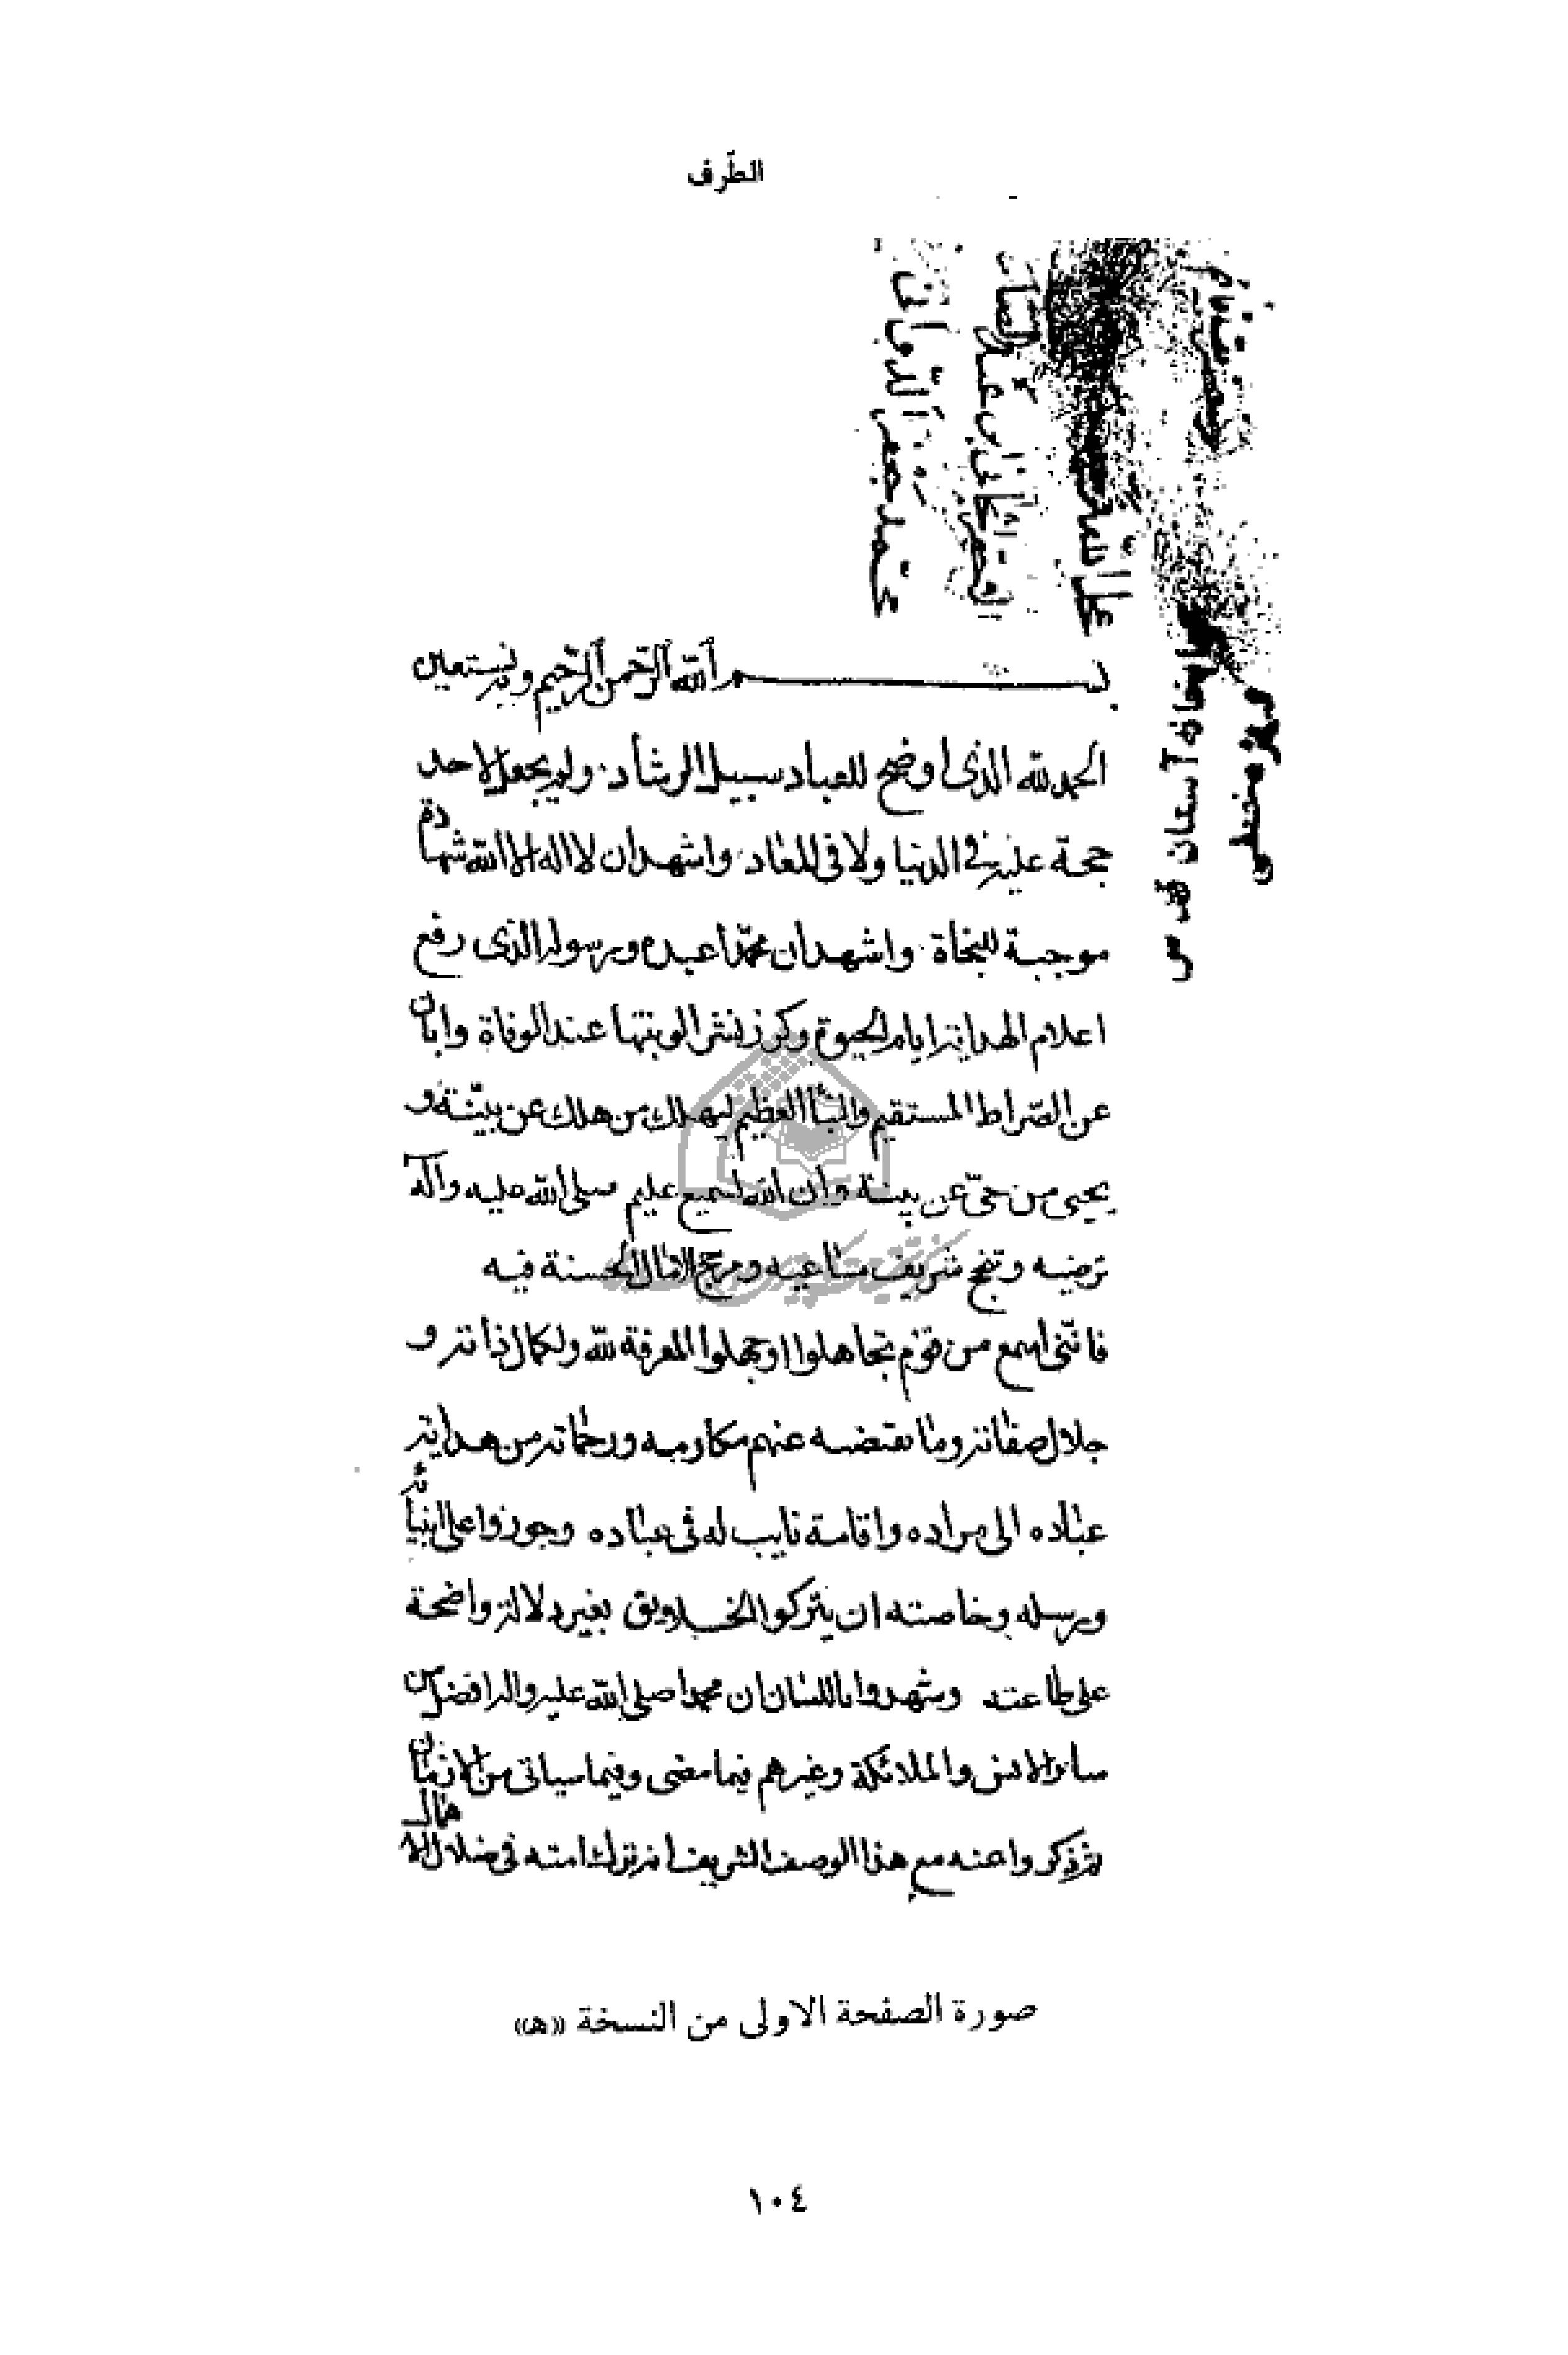 الطّرف
بسم الله الرحمن الرحيم وبه نستعين
الحمد لله الذى اوضح للعباد سبيل الرشاد ولم يجعل لاحد
حجة عليه فى الدنيا ولا فى المعاد واشهد ان لا اله الا الله شهادة
موجبة للنجاة واشهد ان محمّدا عبده ورسوله الذى رفع
اعلام الهداية ايام الحيوة وكرر نشر الويتها عند الوفاة وابان
عن الصّراط المستقيم والنبأ العظيم ليهلك من هلك عن بيّنة و
يحيى من حىّ عن بينة وان الله لسميع عليم صلى الله عليه وآله
ترضيه وتنجح شريف مساعيه و الامال الحسنة فيه
فانّنى اسمع من قوم تجاهلوا او جهلوا المعرفة لله ولكمال ذاته و
جلال صفاته وما تقتضيه عنهم مكارمه ورحماته من هدايته
عباده الى مراده واقامة نايب له فى عباده وجوزوا على انبيائه
ورسله وخاصته ان يتركوا الخلايق بغير دلالة واضحة
على طاعته وشهدوا باللسان ان محمدا صلى الله عليه واله افضل من
سائر الانس والملائكة وغيرهم فيما مضى وفيما سياتى من الازمان
ثم ذكروا عنه مع هذا الوصف الشريف انه ترك امته فى ضلال
صورة الصفحة الاولى من النسخة «ه»
١٠٤
على الله
محمد جعفر
آستان قدس